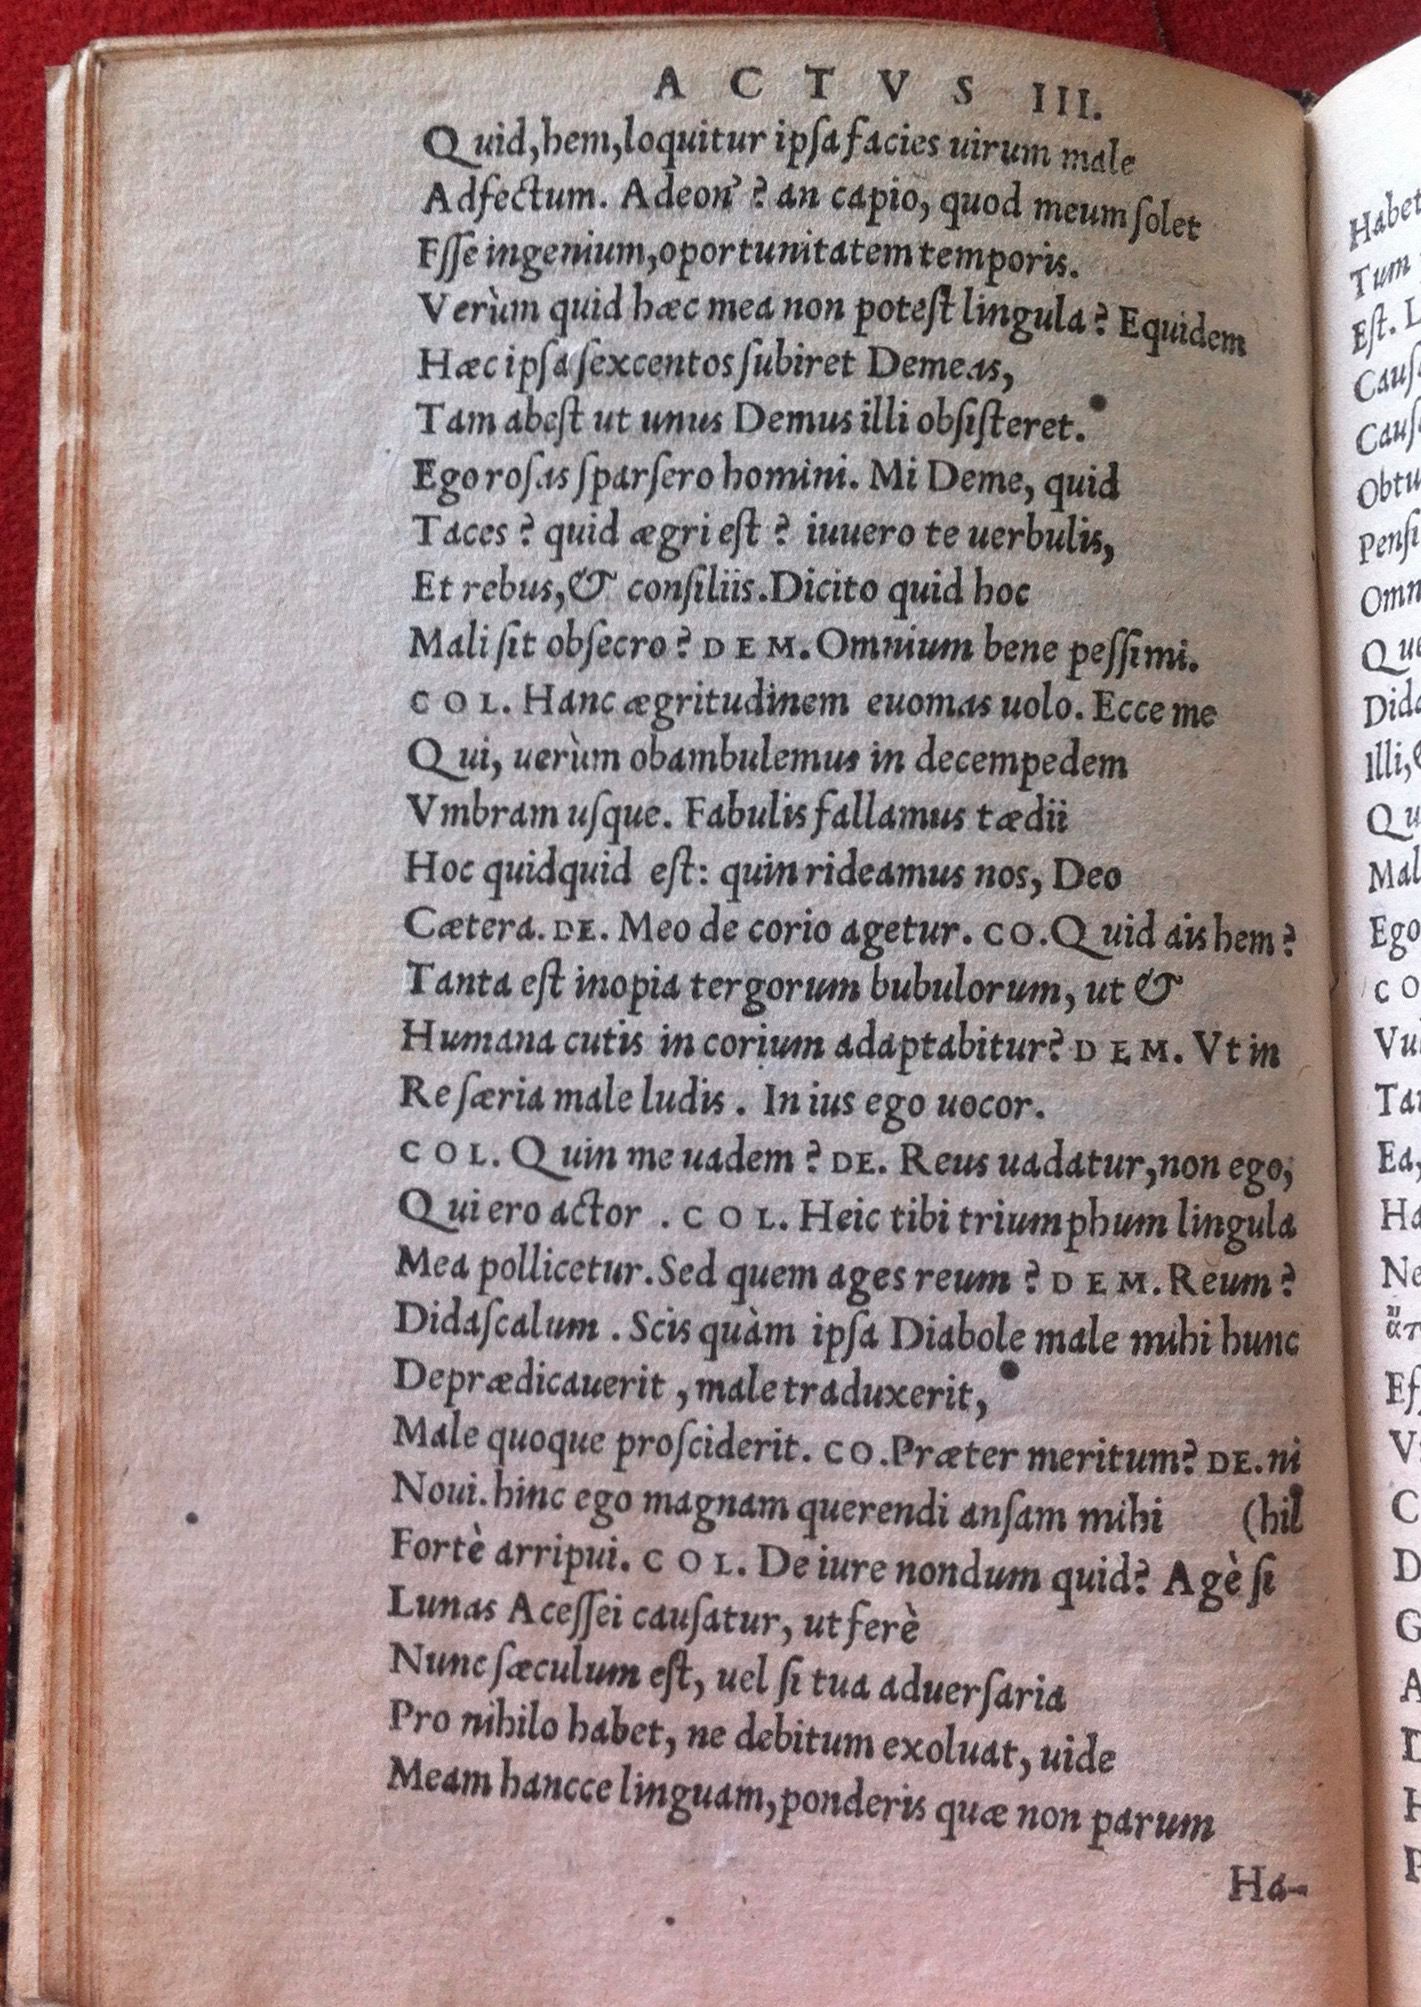 ACTVS III.
Quid,hem,loquitur ipſa facies uirum male
Adfectum. Adeon' ? an capio, quod meum ſolet
Eſſe ingenium,oportunitatem temporis.
Verùm quid hæc mea non poteſt lingula? Equidem
Hæc ipſa ſexcentos ſubiret Demeas,
Tam abeſt ut unus Demus illi obſiſteret.
Ego roſas ſparſero homini. Mi Deme, quid
Taces ? quid ægri eſt ? iuuero te uerbulis,
Et rebus,& conſiliis.Dicito quid hoc
Mali ſit obſecro? DEM.Omnium bene peſſimi.
COL. Hanc ægritudinem euomas uolo. Ecce me
Qui, uerùm obambulemus in decempedem
Vmbram uſque. Fabulis fallamus tædii
Hoc quidquid eſt: quin rideamus nos, Deo
Cætera. DE. Meo de corio agetur. CO.Quid ais hem?
Tanta eſt inopia tergorum bubulorum, ut &
Humana cutis in corium adaptabitur? DEM. Vt in
Re ſæria male ludis . In ius ego uocor.
COL. Quin me uadem ? DE. Reus uadatur,non ego,
Qui ero actor . COL. Heic tibi triumphum lingula
Mea pollicetur.Sed quem ages reum ? DEM.Reum?
Didaſcalum . Scis quàm ipſa Diabole male mihi hunc
Deprædicauerit , male traduxerit,
Male quoque proſciderit. CO.Præter meritum? DE.ni
Noui.hinc ego magnam querendi anſam mihi (hil
Fortè arripui. COL. De iure nondum quid? Agè ſi
Lunas Aceſſei cauſatur, ut ferè
Nunc ſæculum eſt, uel ſi tua aduerſaria
Pro nihilo habet, ne debitum exoluat, uide
Meam hancce linguam,ponderis quæ non parum
Ha-
Habet
Tum
Eſt. L
Obtu
Penſi
Omn
Qu
Illi,
Qu
Mal
Ego
CO
Vu
Ea,
Ha
Ne